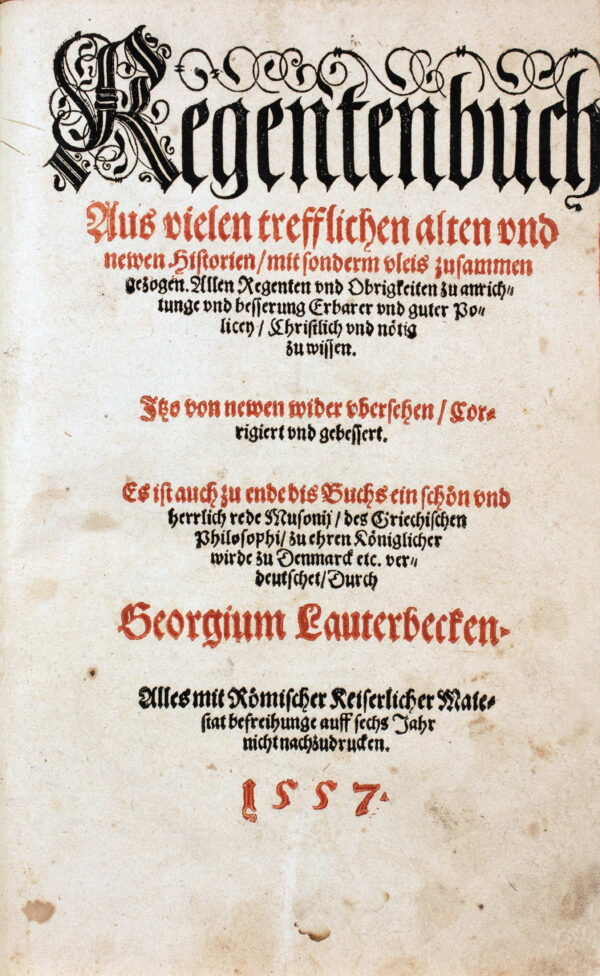 Regentenbuch
Aus vielen trefflichen alten vnd
newen Historien / mit sonderm vleis zusammen
gezogen. Allen Regenten vnd Obrigkeiten zu anrich⸗
tunge vnd besserung Erbarer vnd guter Po⸗
licey / Christlich vnd nötig
zu wissen.
Itzo von newen wider vbersehen / Cor⸗
rigiert vnd gebessert.
Es ist auch zu ende dis Buchs ein schön vnd
herrlich rede Musonij / des Griechischen
Philosophi / zu ehren Königlicher
wirde zu Denmarck etc. ver⸗
deutschet / Durch
Georgium Lauterbecken.
Alles mit Römischer Keiserlicher Maie⸗
stat befreihunge auff sechs Jahr
nicht nachzudrucken.
1557.